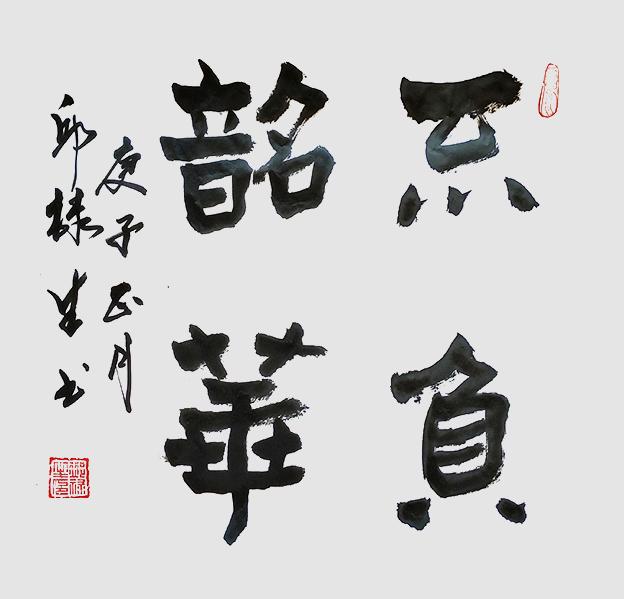 不負
韶華
庚子正月
邱棣生书